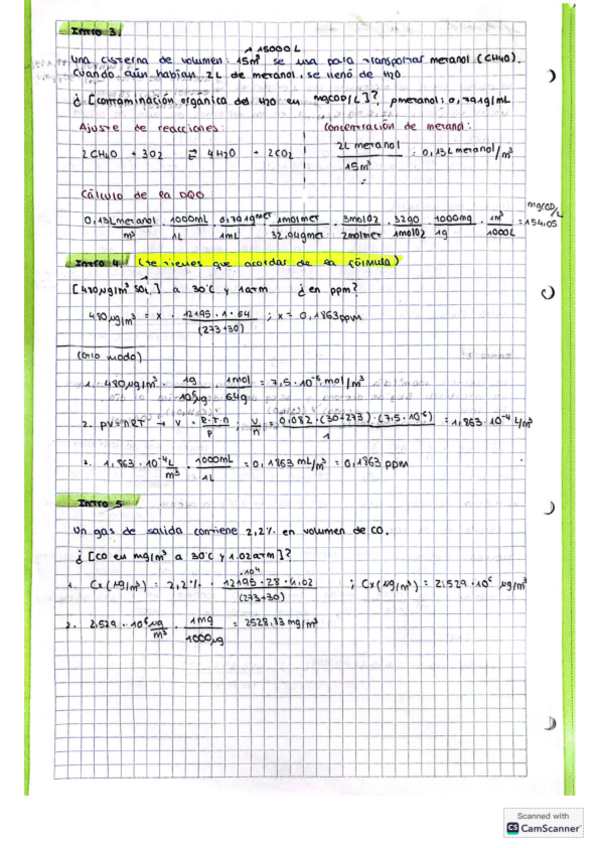 Intro 3.
↑ 15000 L
Una cisterna de volumen: 15m³ se usa para transportar metanol (CH4O).
Cuando aún habían 2L de metanol, se llenó de H2O
¿[contaminación orgánica del H2O en mgCOD/L]? ρmetanol: 0,791g/mL
Ajuste de reacciones:
2CH4O + 3O2 ⇄ 4H2O + 2CO2
Concentración de metanol:
2L metanol / 15m³ = 0,13L metanol/m³
Cálculo de la DQO
0,13L metanol/m³ · 1000mL/1L · 0,791g met/1mL · 1mol met/32,04g met · 3molO2/2mol met · 32gO/1molO2 · 1000mg/1g · 1m³/1000L = 154,05 mgCOD/L
Intro 4. (te tienes que acordar de la fórmula)
[480μg/m³ SO2] a 30°C y 1atm ¿en ppm?
480μg/m³ = x · 12195·1·64/(273+30) ; x = 0,1863ppm
(otro modo)
1. 480μg/m³ · 1g/10⁶μg · 1mol/64g = 7,5·10⁻⁶ mol/m³
2. PV=nRT → V = R·T·n/P ; V/n = 0,082·(30+273)·(7,5·10⁻⁶)/1 = 1,863·10⁻⁴ L/m³
3. 1,863·10⁻⁴ L/m³ · 1000mL/1L = 0,1863 mL/m³ = 0,1863 ppm
Intro 5
Un gas de salida contiene 2,2% en volumen de CO.
¿[CO en mg/m³ a 30°C y 1.02atm]?
1. Cx(μg/m³) = 2,2% ·10⁴ · 12195·28·1,02/(273+30) ; Cx(μg/m³) = 2,529·10⁶ μg/m³
2. 2,529·10⁶ μg/m³ · 1mg/1000μg = 2528,83 mg/m³
Scanned with
CS CamScanner